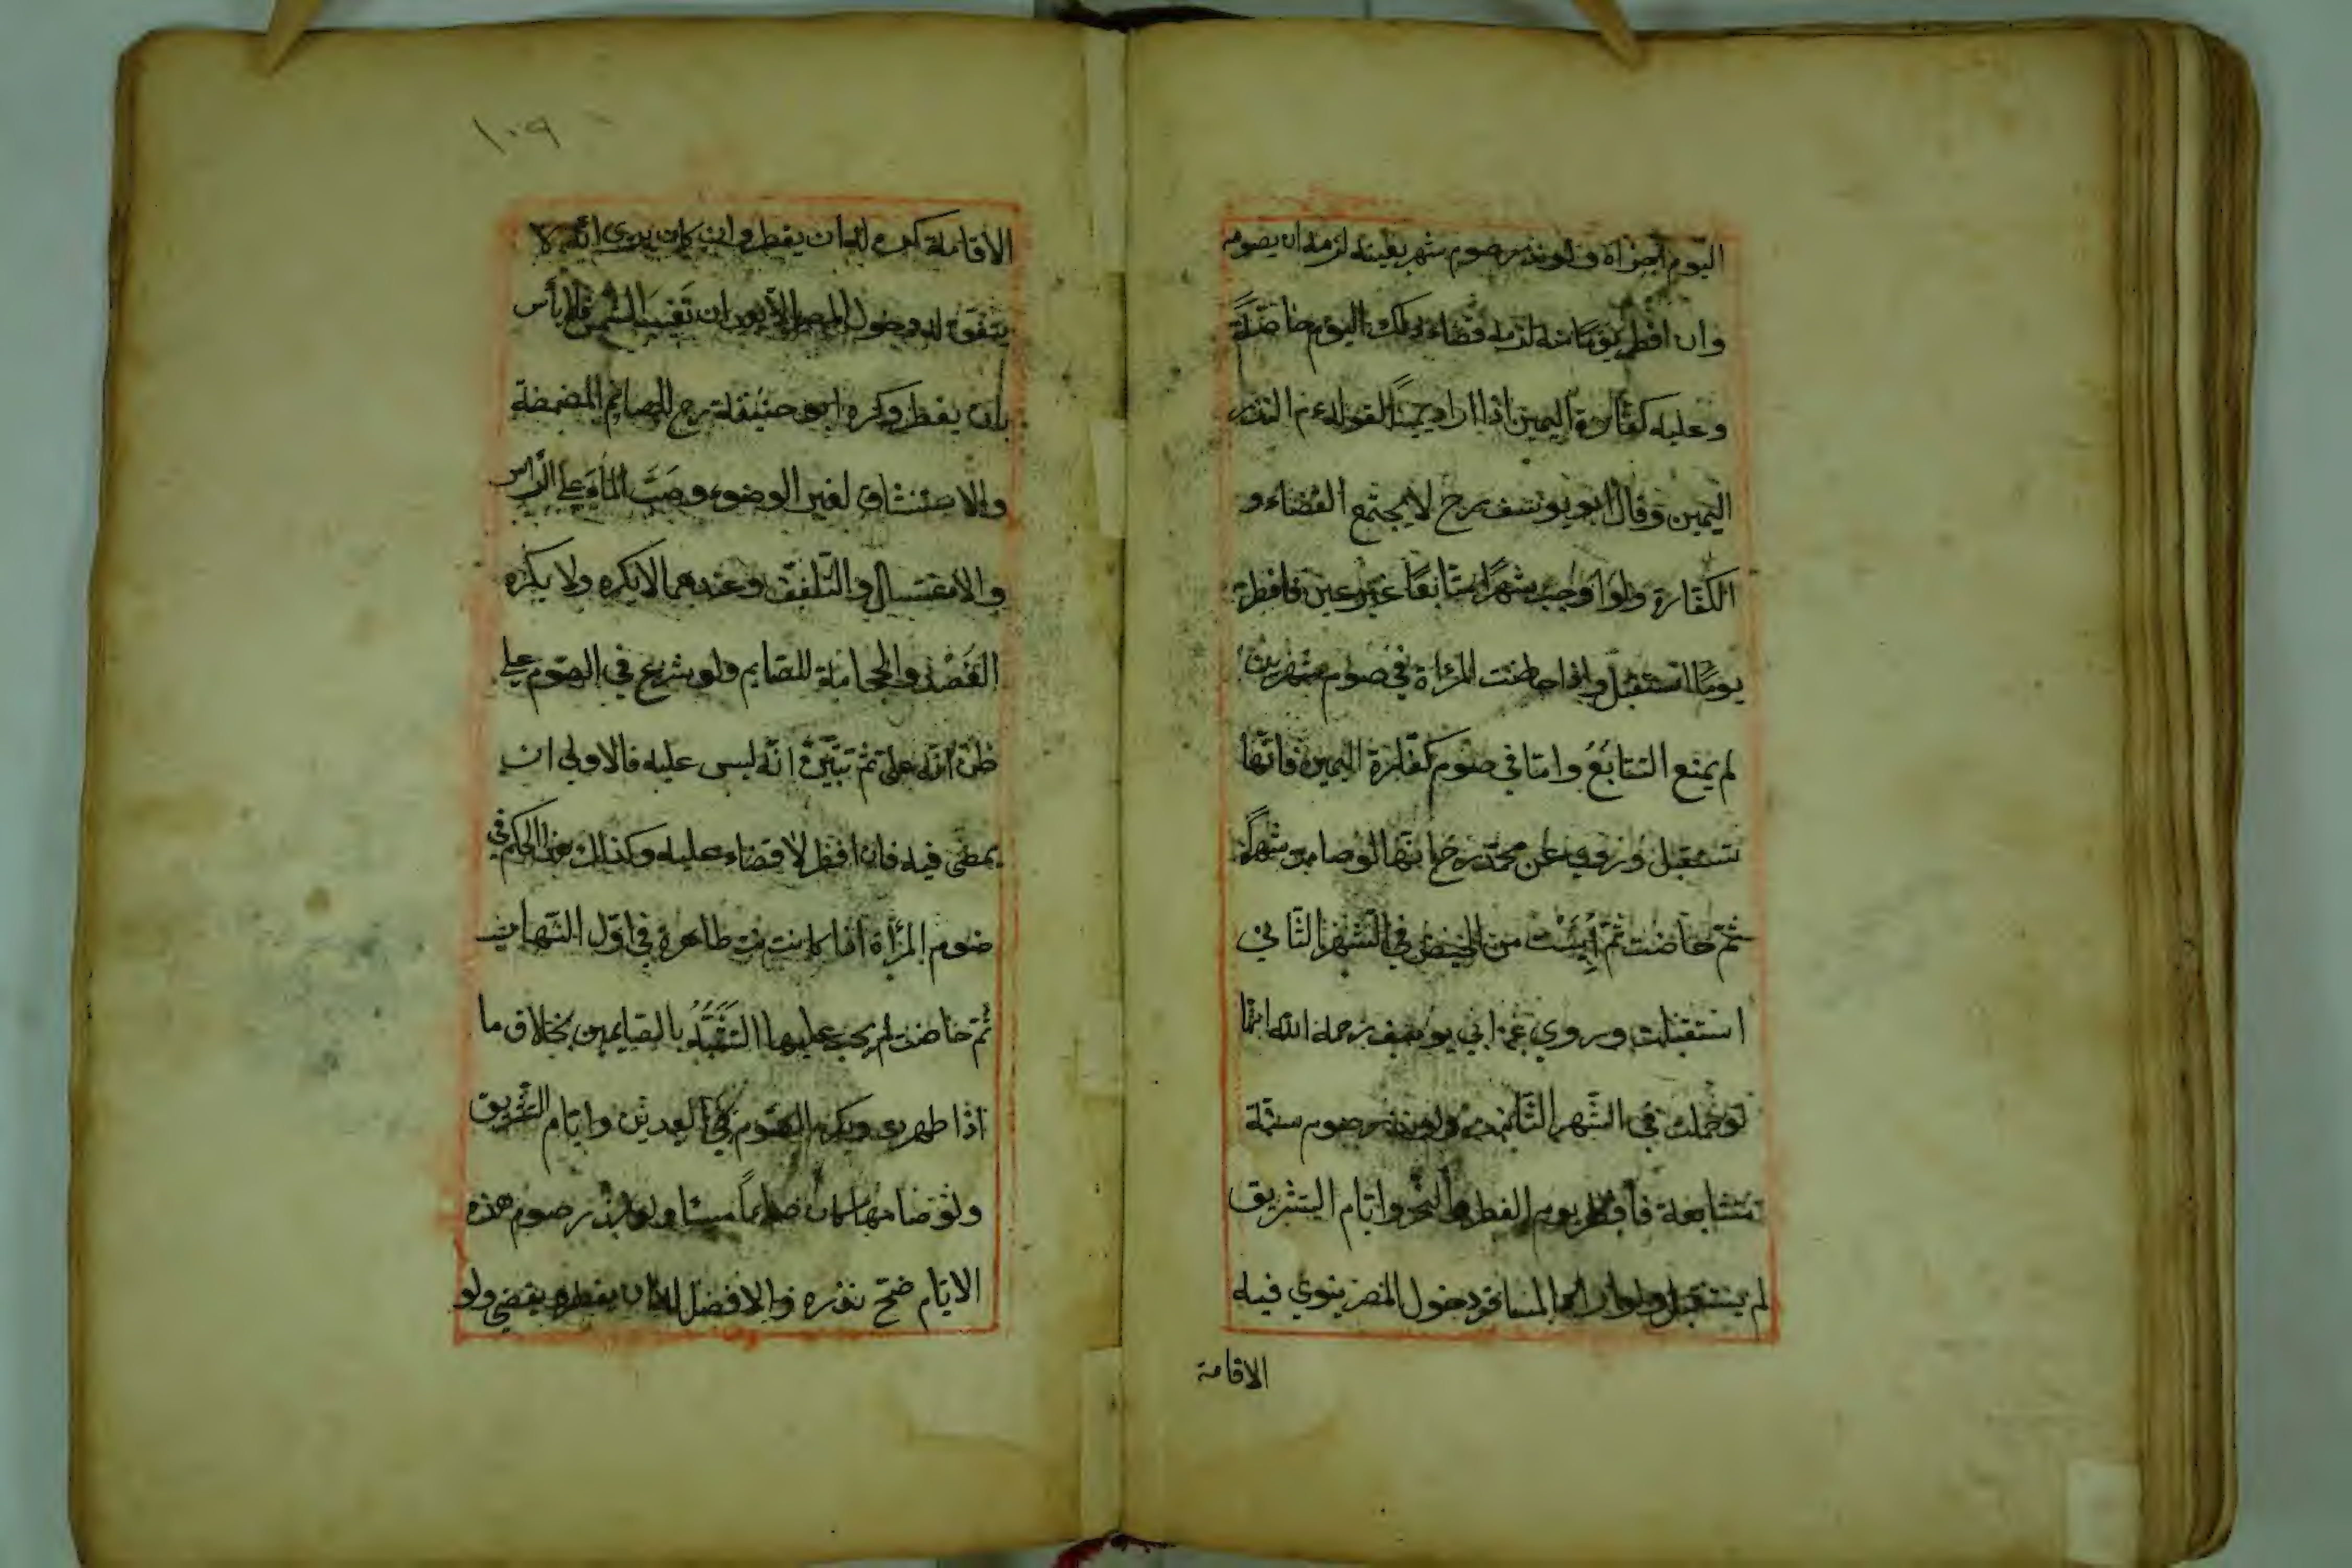 اليوم اجزاه ولو نذر صوم شهر بعينه لزمه ان يصومه
وان افطر يوما منه لزمه قضاء ذلك اليوم خاصّة
وعليه كفّارة اليمين اذا اراد يمينًا لقوله عم النذر
اليمين وقال ابو يوسف رح لا يجتمع القضاء و
الكفّارة ولو اوجب شهرًا متتابعًا غير عين فافطر
يومًا استقبل واذا حاضت المرأة في صوم شهرين
لم يمنع التتابُعُ وامّا في صوم كفّارة اليمين فانّها
تستقبل وروي عن محمّد رح انّها لو صامت شهرًا
ثمّ حاضت ثمّ أَيِسَتْ من الحيض في الشّهر الثّاني
استقبلت وروي عن ابي يوسف رحمه الله انّها
لو حبلت في الشّهر الثّاني ولو نذر صوم سنة
متتابعة فأفطر يوم الفطر والنّحر وايّام التشريق
لم يستقبل ولو اراد المسافر دخول المصر ينوي فيه
الاقامة
١٠٩
الاقامة كره له ان يفطر وان كان يرى انّه لا
يتفق له دخول المصر الا بعد ان تَغيبَ الشّمس فلا بأس
بان يفطر وكره ابو حنيفة رح للصائم المضمضة
والاستنشاق لغير الوضوء وصَبَّ الماءَ على الرّاس
والاغتسال والتّلفّف وعندهما لا يكره ولا يكره
الفَصْد والحجامة للصّايم ولو شرع في الصّوم على
ظنّ انّه عليه ثمّ تبيّن انّه ليس عليه فالاولى ان
يمضي فيه فان افطر لا قضاء عليه وكذلك هذا الحكم في
صوم المرأة اذا كانت طاهرة في اوّل النّهار
ثمّ حاضت لم يجب عليها التّشَبُّه بالصّايمين بخلاف ما
اذا طهرت ويكره الصّوم في العيدين وايّام التّشريق
ولو صامها كان صايمًا مسيئا ولو نذر صوم هذه
الايّام صَحّ نذره والافضل له ان يفطر ويقضي ولو